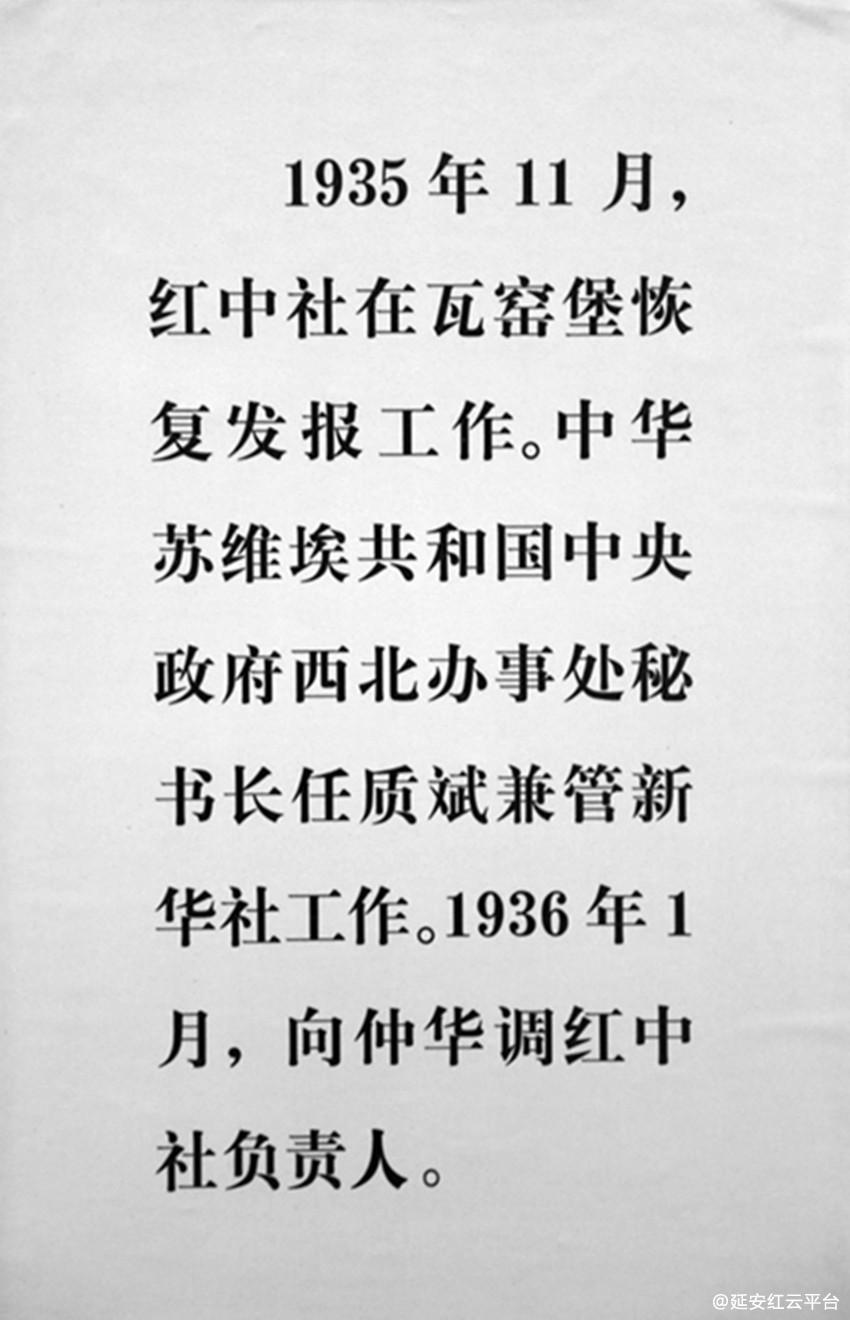 1935 年 11 月，
红中社在瓦窑堡恢
复发报工作。中华
苏维埃共和国中央
政府西北办事处秘
书长任质斌兼管新
华社工作。1936 年 1
月，向仲华调红中
社负责人。
@延安红云平台